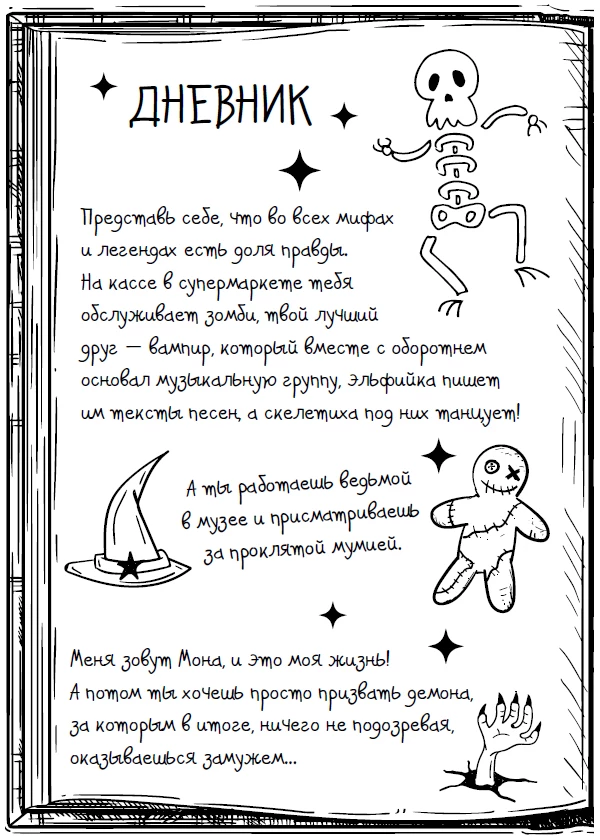 ДНЕВНИК
Представь себе, что во всех мифах
и легендах есть доля правды.
На кассе в супермаркете тебя
обслуживает зомби, твой лучший
друг — вампир, который вместе с оборотнем
основал музыкальную группу, эльфийка пишет
им тексты песен, а скелетиха под них танцует!
А ты работаешь ведьмой
в музее и присматриваешь
за проклятой мумией.
Меня зовут Мона, и это моя жизнь!
А потом ты хочешь просто призвать демона,
за которым в итоге, ничего не подозревая,
оказываешься замужем...